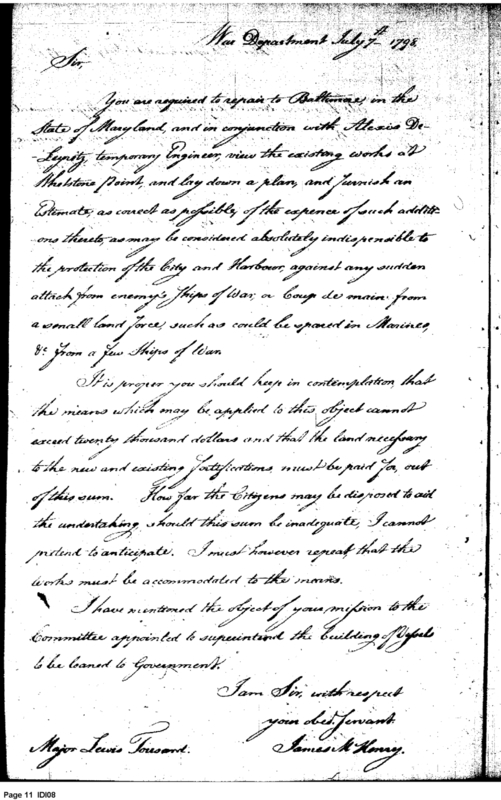 War Department July 7th 1798
Sir,
You are required to repair to Baltimore, in the
State of Maryland, and in conjunction with Alexis De-
Leyritz, temporary Engineer, view the existing works at
Whetstone Point, and lay down a plan, and furnish an
Estimate, as correct as possible, of the expence of such additi-
ons thereto, as may be considered absolutely indispensible to
the protection of the City and Harbour, against any sudden
attack from enemy's Ships of War, or Coup de main from
a small land force, such as could be spared in Marines,
&c from a few Ships of War.
It is proper you should keep in contemplation that
the means which may be applied to this object cannot
exceed twenty thousand dollars and that the land necessary
to the new and existing fortifications, must be paid for, out
of this sum. How far the Citizens may be disposed to aid
the undertaking, should this sum be inadequate, I cannot
pretend to anticipate. I must however repeat, that the
works must be accommodated to the means.
I have mentioned the object of your mission to the
Committee appointed to superintend the building of Vessels
to be loaned to Government.
I am Sir, with respect
your obed. servant.
James McHenry.
Major Lewis Tousard.
Page 11 IDI08